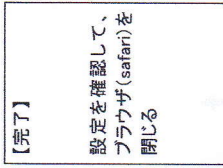 【完了】
設定を確認して、
ブラウザ(safari)を
閉じる